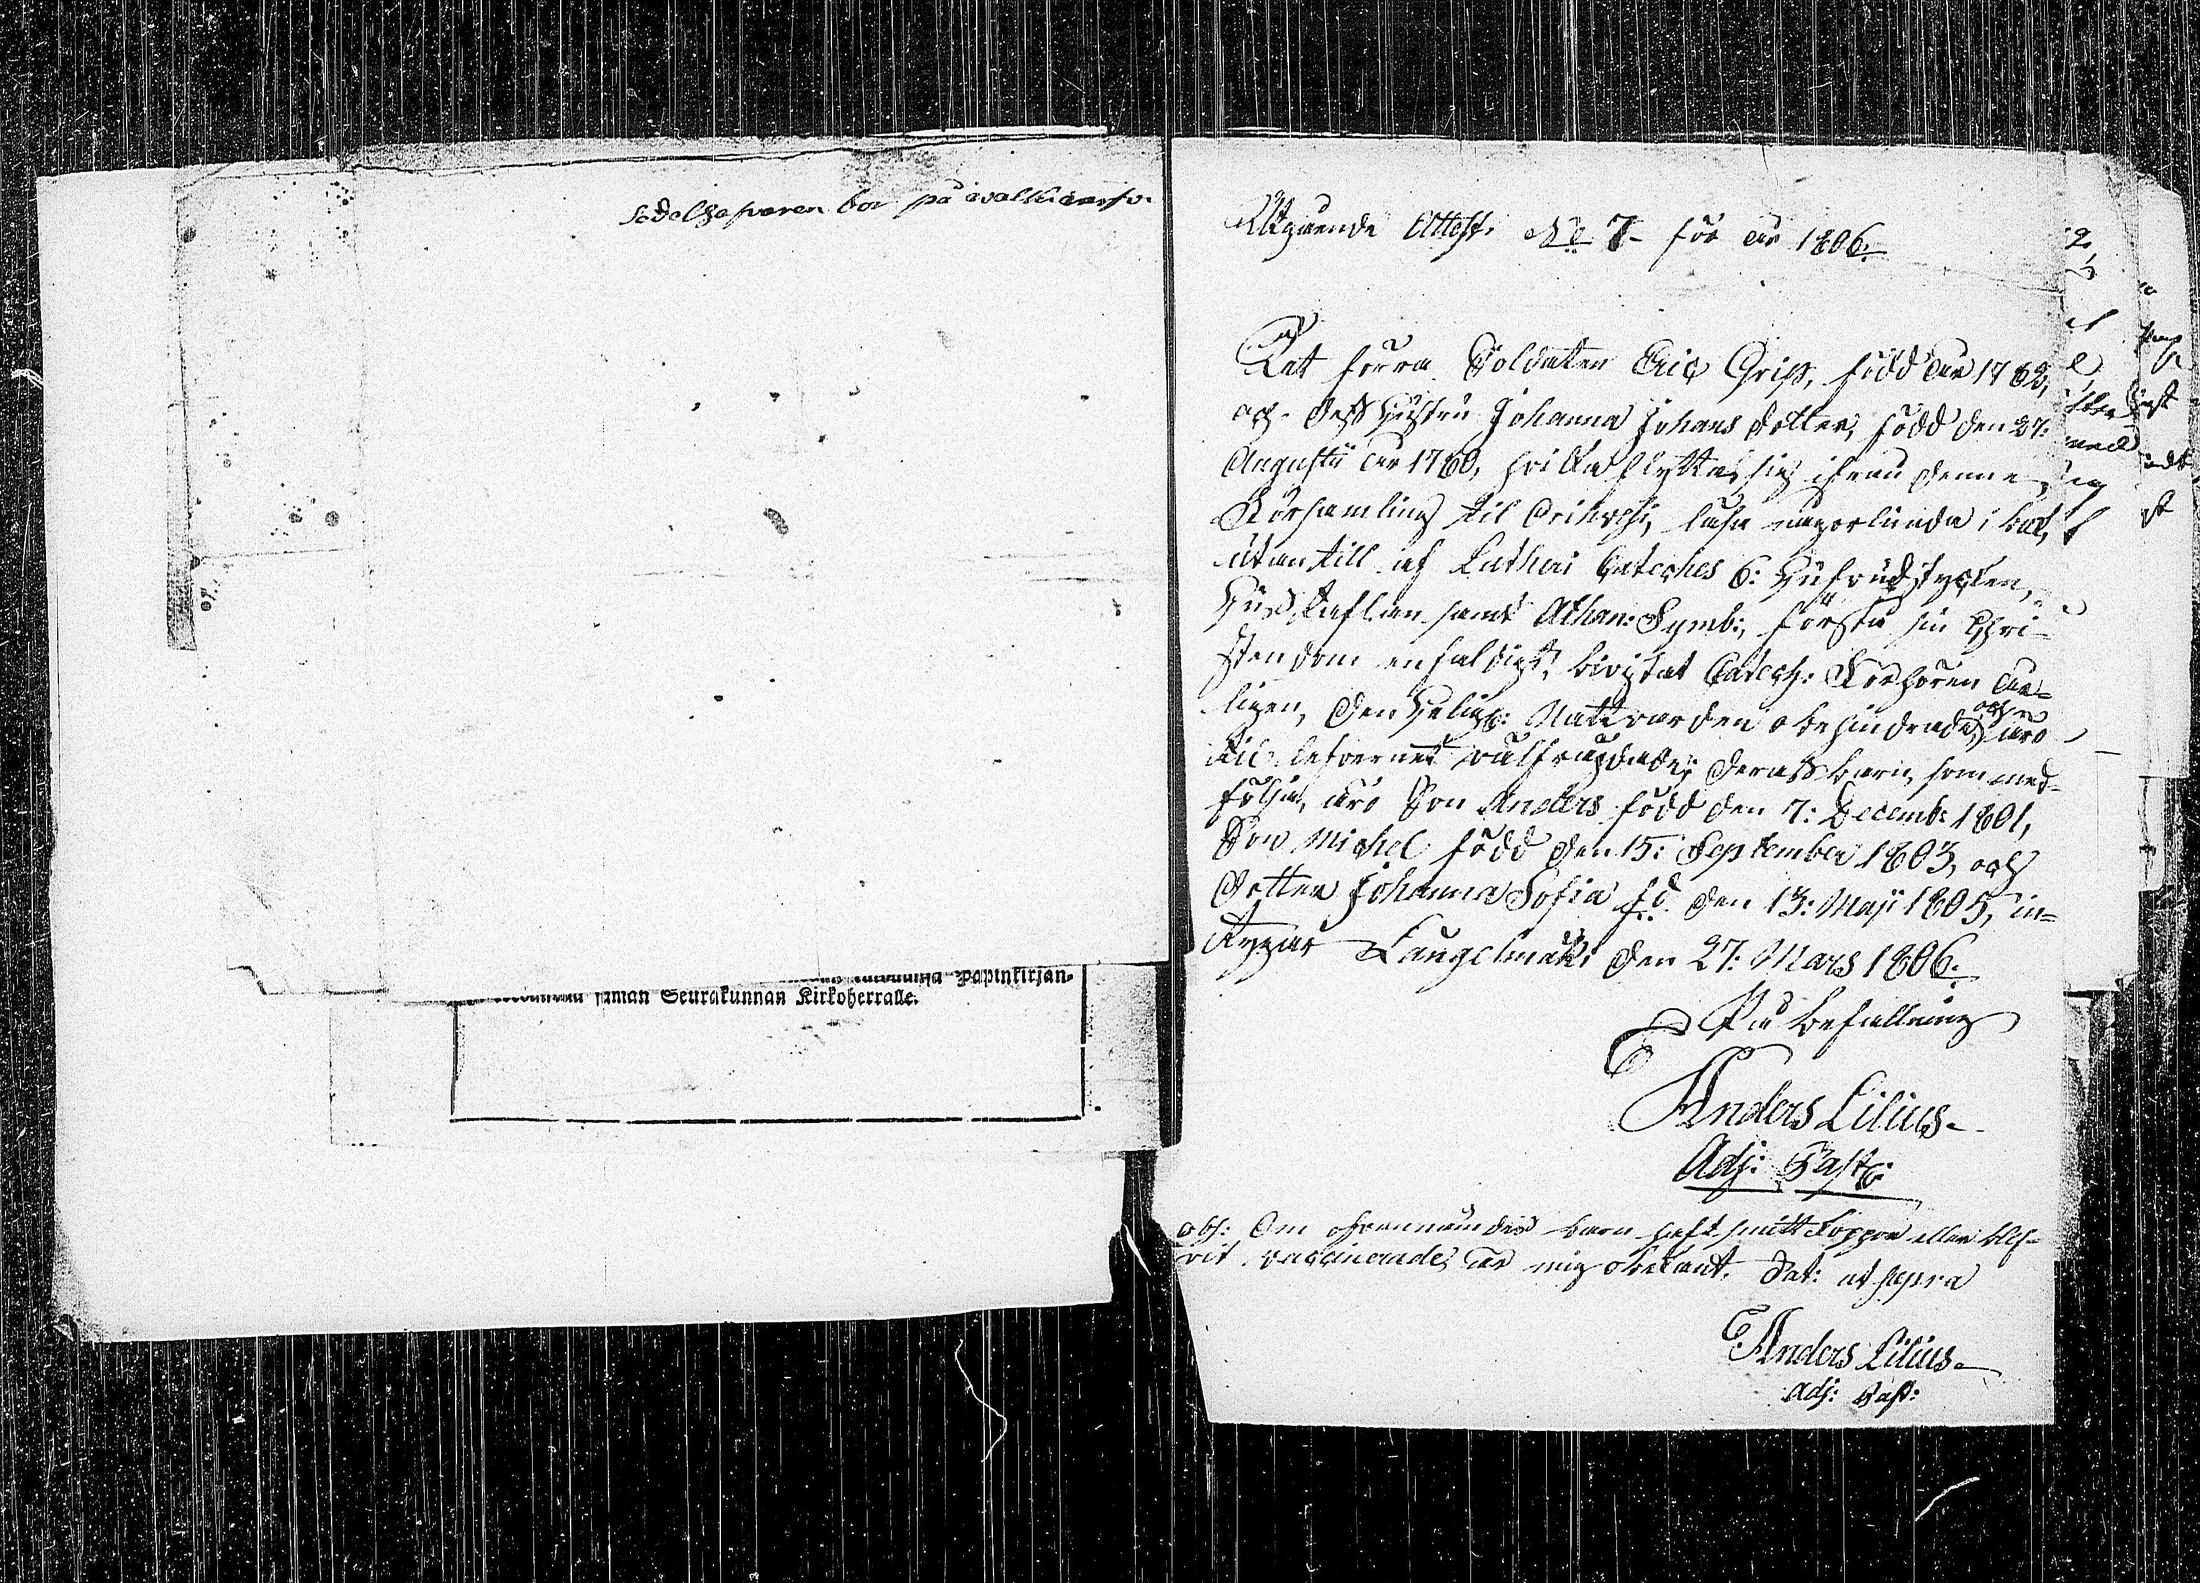 Sedelhafvaren bor på
Papinkirjan-
saman Seurakunnan Kirkoherralle.
Utgående Attest. No 7 för år 1806.
At förra Soldaten Eric Grip, född år 1762,
och dess Hustru Johanna Johans dotter, född den 27:
Augustii år 1760, hvilka flytta sig ifrån denne
Församling til Orihvesi, läsa någorlunda i bok,
utantill af Lutheri Cateches 6: Hufvudstycken,
Hustaflan samt Athan: Symb:, förstå sin Chri-
stendom enfaldigt, bivistat Catech: Förhören år-
ligen, den Helige: Nattvarden obehindrade, och äro
til lefvernet välfrägdade; derass barn, som med-
följa, äro Son Anders född den 7: Decemb: 1801,
Son Michel född den 15: September 1803, och
Dotter Johanna Sofia fd den 13: Maji 1805, in-
tygar Längelmäki den 27: Mars 1806.
På befallning
Anders Lilius.
Adj: Past:
obs: Om ofvannämdes barn haft smittkoppor eller blif-
vit vaccinerade, är mig obekant. Dat: ut supra
Anders Lilius.
Adj: Past: